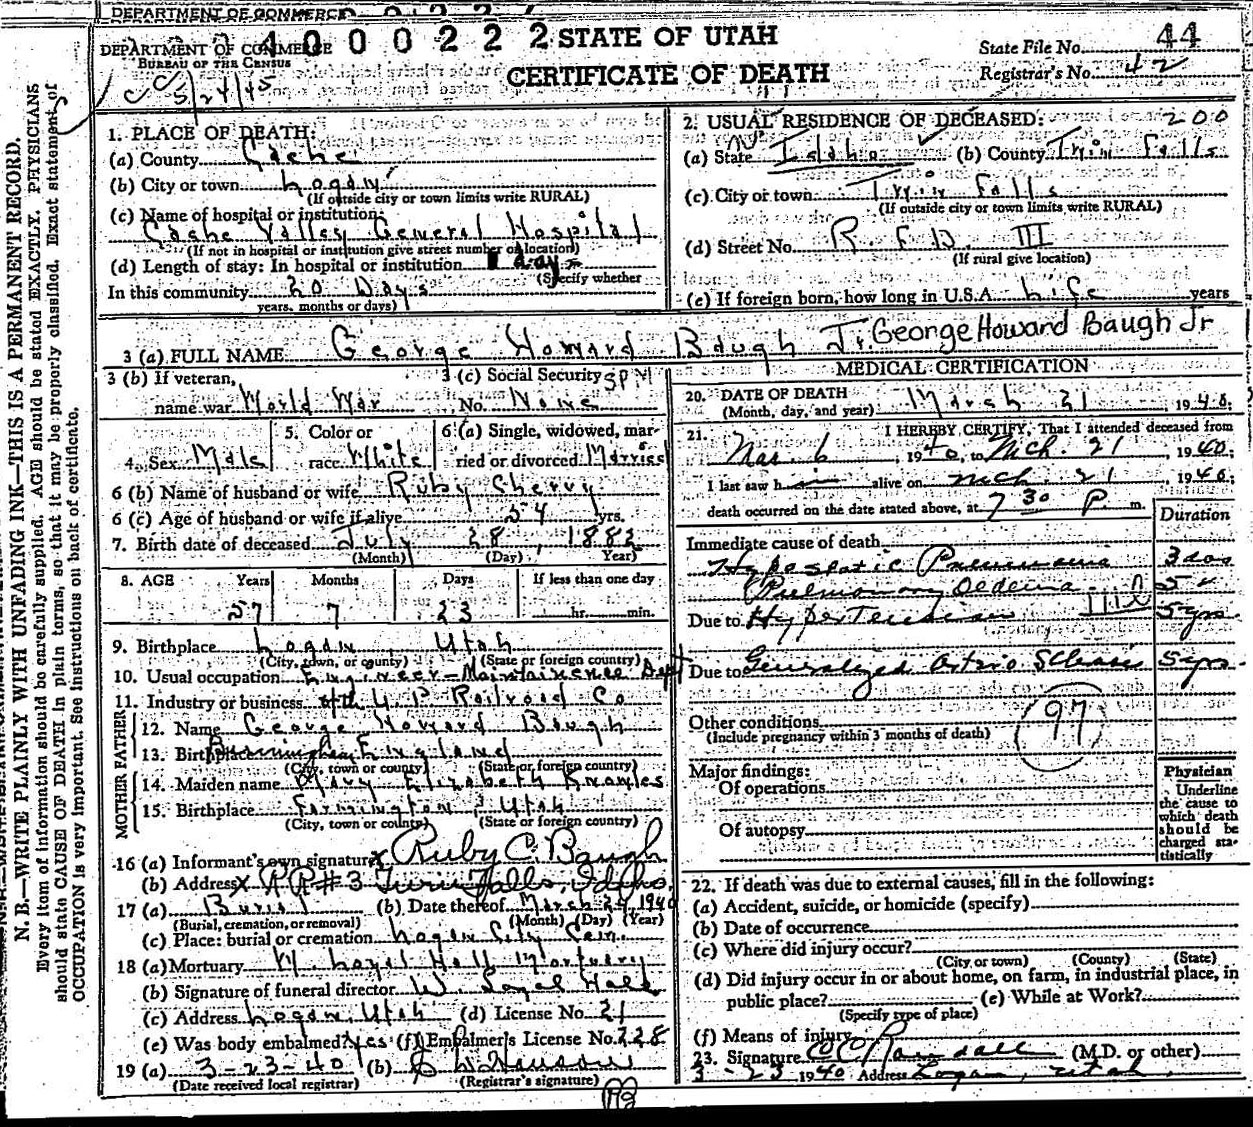 DEPARTMENT OF COMMERCE
DEPARTMENT OF COMMERCE
BUREAU OF THE CENSUS
400 0222
STATE OF UTAH
CERTIFICATE OF DEATH
State File No. 44
Registrar's No. 42
5/24/45
N. B.—WRITE PLAINLY WITH UNFADING INK—THIS IS A PERMANENT RECORD.
Every item of information should be carefully supplied. AGE should be stated EXACTLY. PHYSICIANS
should state CAUSE OF DEATH in plain terms, so that it may be properly classified. Exact statement of
OCCUPATION is very important. See instructions on back of certificate.
1. PLACE OF DEATH:
(a) County Cache
(b) City or town Logan
(If outside city or town limits write RURAL)
(c) Name of hospital or institution:
Cache Valley General Hospital
(If not in hospital or institution give street number or location)
(d) Length of stay: In hospital or institution 1 day
(Specify whether
In this community 20 Days
years, months or days)
2. USUAL RESIDENCE OF DECEASED: 200
(a) State Idaho (b) County Twin Falls
(c) City or town Twin Falls
(If outside city or town limits write RURAL)
(d) Street No. R. F. D. III
(If rural give location)
(e) If foreign born, how long in U.S.A. Life years
3 (a) FULL NAME George Howard Baugh Jr. George Howard Baugh Jr
3 (b) If veteran, name war World War
3 (c) Social Security No. None
4. Sex Male
5. Color or race White
6 (a) Single, widowed, married or divorced Married
6 (b) Name of husband or wife Ruby Cherry
6 (c) Age of husband or wife if alive 54 yrs.
7. Birth date of deceased July 28, 1882
(Month) (Day) (Year)
8. AGE Years Months Days If less than one day
57 7 23 hr. min.
9. Birthplace Logan, Utah
(City, town, or county) (State or foreign country)
10. Usual occupation Engineer-Maintainence Dept
11. Industry or business U. P. Railroad Co
FATHER
12. Name George Howard Baugh
13. Birthplace Birmingham England
(City, town or county) (State or foreign country)
MOTHER
14. Maiden name Mary Elizabeth Knowles
15. Birthplace Farmington, Utah
(City, town or county) (State or foreign country)
16 (a) Informant's own signature x Ruby C. Baugh
(b) Address x RR #3 Twin Falls, Idaho.
17 (a) Burial (b) Date thereof March 24 1940
(Burial, cremation, or removal) (Month) (Day) (Year)
(c) Place: burial or cremation Logan City Cem.
18 (a) Mortuary W. Loyal Hall Mortuary
(b) Signature of funeral director W. Loyal Hall
(c) Address Logan, Utah (d) License No. 21
(e) Was body embalmed? Yes (f) Embalmer's License No. 228
19 (a) 3-23-40 (b)
(Date received local registrar) (Registrar's signature)
MEDICAL CERTIFICATION
20. DATE OF DEATH
(Month, day, and year) March 21 1940.
21. I HEREBY CERTIFY, That I attended deceased from
Mar. 6, 1940, to Mch. 21, 1940;
I last saw him alive on Mch. 21, 1940;
death occurred on the date stated above, at 7 30 P. m.
Duration
Immediate cause of death
Hypostatic Pneumonia 3 das
Pulmonary Oedema 5 "
Due to Hypertension 5 yrs.
Due to Generalized Arterio Sclerosis 5 yrs.
97
Other conditions
(Include pregnancy within 3 months of death)
Major findings:
Of operations
Of autopsy
Physician
Underline
the cause to
which death
should be
charged sta-
tistically
22. If death was due to external causes, fill in the following:
(a) Accident, suicide, or homicide (specify)
(b) Date of occurrence
(c) Where did injury occur?
(City or town) (County) (State)
(d) Did injury occur in or about home, on farm, in industrial place, in
public place? (e) While at Work?
(Specify type of place)
(f) Means of injury
23. Signature Randall (M.D. or other)
3-23 1940 Address Logan, Utah.